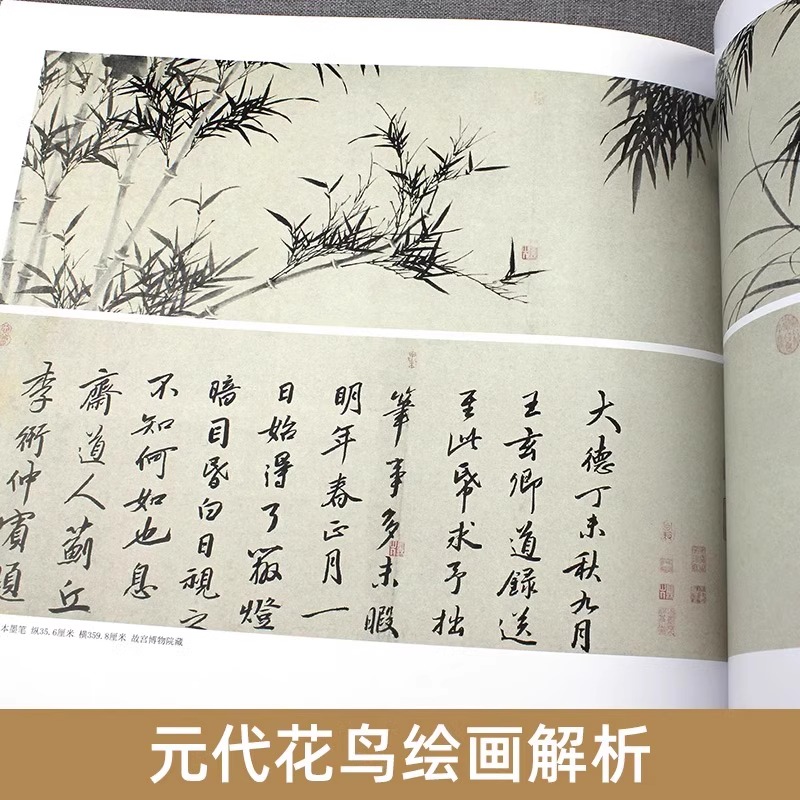 大德丁未秋九月
王玄卿道録送
至此帋求予拙
筆事多未暇
明年春正月一
日始得了燈
暗目昏白日視之
不知何如也息
齋道人薊丘
李衎仲賓題
本墨笔 纵35.6厘米 横359.8厘米 故宫博物院藏
元代花鸟绘画解析